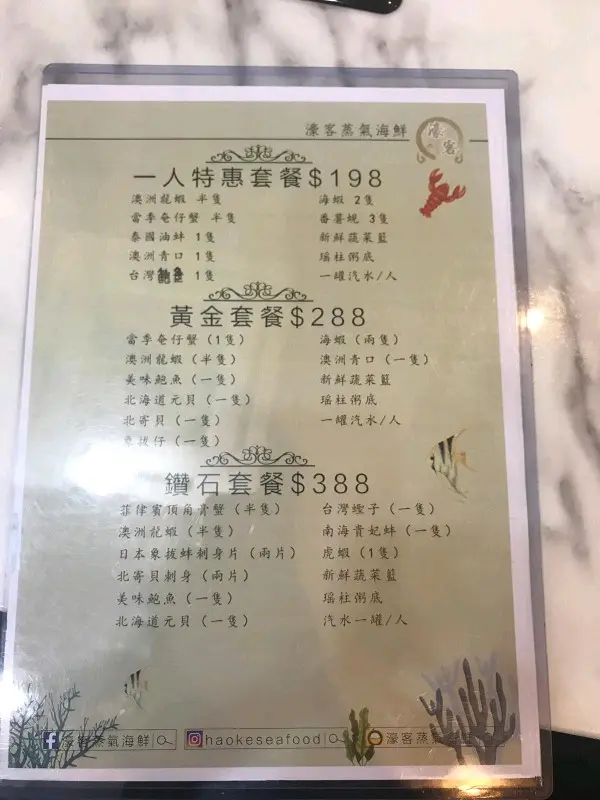 濠客蒸氣海鮮
濠客
一人特惠套餐$198
澳洲龍蝦 半隻
海蝦 2隻
當季奄仔蟹 半隻
番薯蜆 3隻
泰國油蚌 1隻
新鮮蔬菜籃
澳洲青口 1隻
瑶柱粥底
台灣鮑魚 1隻
一罐汽水/人
黃金套餐$288
當季奄仔蟹 (1隻)
海蝦 (兩隻)
澳洲龍蝦 (半隻)
澳洲青口 (一隻)
美味鮑魚 (一隻)
新鮮蔬菜籃
北海道元貝 (一隻)
瑶柱粥底
北寄貝 (一隻)
一罐汽水/人
象拔仔 (一隻)
鑽石套餐$388
菲律賓頂角膏蟹 (半隻)
台灣蟶子 (一隻)
澳洲龍蝦 (半隻)
南海貴妃蚌 (一隻)
日本象拔蚌刺身片 (兩片)
虎蝦 (1隻)
北寄貝刺身 (兩片)
新鮮蔬菜籃
美味鮑魚 (一隻)
瑶柱粥底
北海道元貝 (一隻)
汽水一罐/人
濠客蒸氣海鮮
haokeseafood
濠客蒸氣